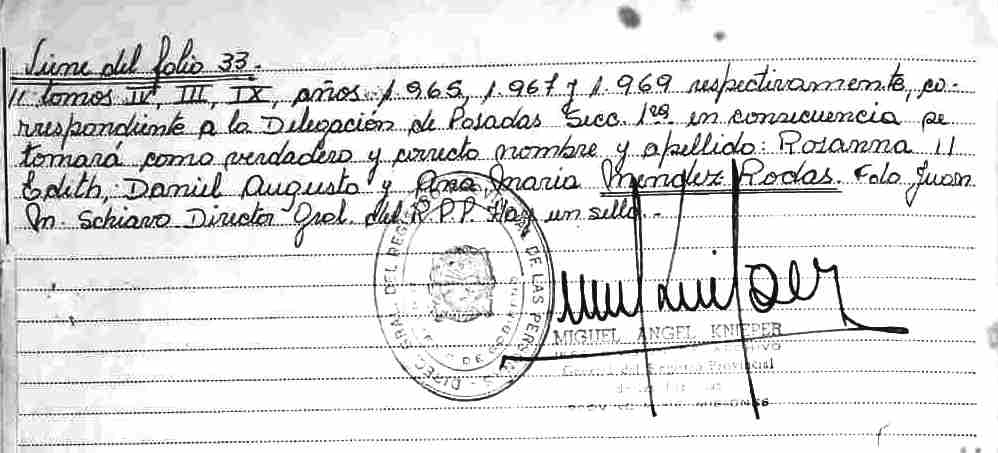 Viene del folio 33.-
// tomos IV, III, IX, años: 1.965, 1.967 y 1.969 respectivamente, co-
rrespondiente a la Delegación de Posadas Secc. 1ra en consecuencia se
tomará como verdadero y correcto nombre y apellido: Rosanna //
Edith, Daniel Augusto y Ana Maria Mendez Rodas. Fdo Juan
M. Schiavo Director Gral. del R.P.P. Hay un sello.-
DIREC. GRAL. DEL REG DE LAS PERSONAS
MIGUEL ANGEL KNIEPER
General del Registro Provincial
de las Personas
PROVINCIA DE MISIONES